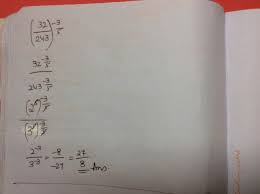 (32/243)^-3/5
32^-3/5
243^-3/5
(2^5)^-3/5
(3^5)^-3/5
2^-3/3^-3 = -8/-27 = 27/8 Ans.